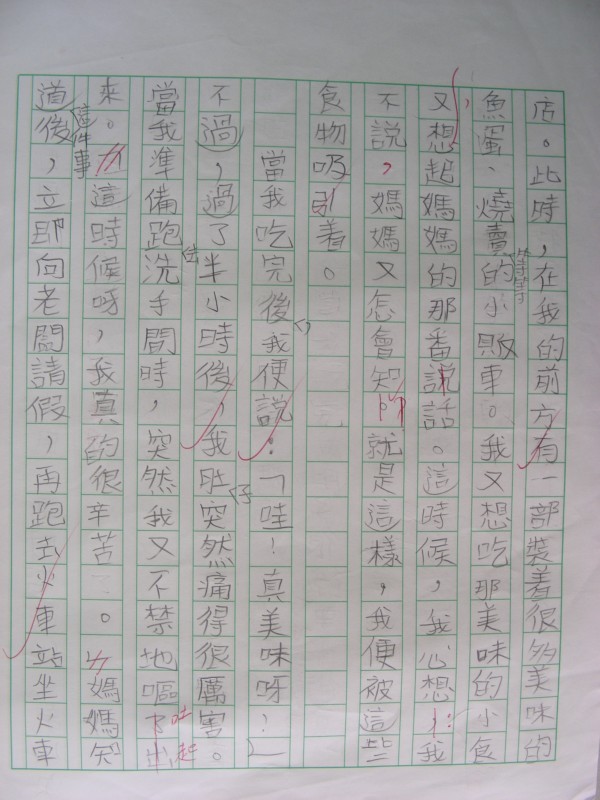 店。此時，在我的前方有一部裝着很多美味的
魚蛋、燒賣等等的小販車。我又想吃那美味的小食
，又想起媽媽的那番說話。這時候，我心想：我
不說，媽媽又怎會知呢？就是這樣，我便被這些
食物吸引着。
當我吃完後，我便說：「哇！真美味呀！」
不過，過了半小時後，我肚仔突然痛得很厲害。
當我準備跑往洗手間時，突然我又不禁地嘔吐起
來。這時候呀，我真的很辛苦。媽媽知
道這件事後，立即向老闆請假，再跑去火車站坐火車